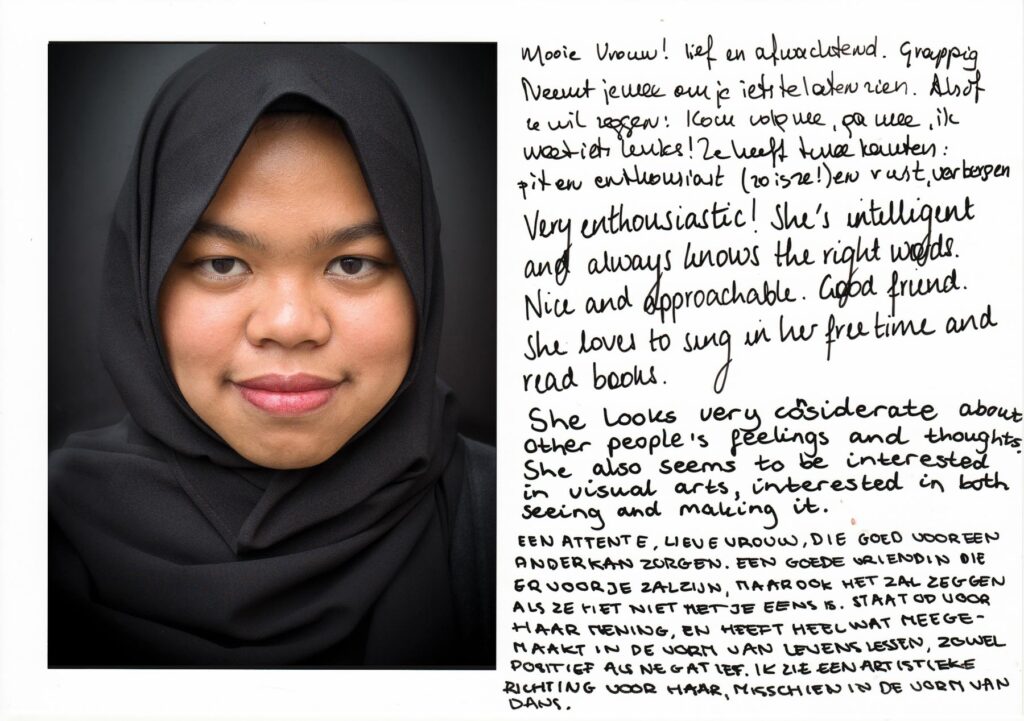 Mooie Vrouw! lief en afwachtend. Grappig
Neemt je mee om je iets te laten zien. Alsof
ze wil zeggen: Kom volg me, ga mee, ik
weet iets leuks! Ze heeft twee kanten:
pit en enthousiast (zo is ze!) en rust, verborgen
Very enthousiastic! She's intelligent
and always knows the right words.
Nice and approachable. Good friend.
She loves to sing in her free time and
read books.
She looks very cosiderate about
other people's feelings and thoughts.
She also seems to be interested
in visual arts, interested in both
seeing and making it.
EEN ATTENTE, LIEVE VROUW, DIE GOED VOOR EEN
ANDER KAN ZORGEN. EEN GOEDE VRIENDIN DIE
ER VOOR JE ZAL ZIJN, MAAR OOK HET ZAL ZEGGEN
ALS ZE HET NIET MET JE EENS IS. STAAT OP VOOR
HAAR MENING, EN HEEFT HEEL WAT MEEGE-
MAAKT IN DE VORM VAN LEVENSLESSEN, ZOWEL
POSITIEF ALS NEGATIEF. IK ZIE EEN ARTISTIEKE
RICHTING VOOR HAAR, MISSCHIEN IN DE VORM VAN
DANS.